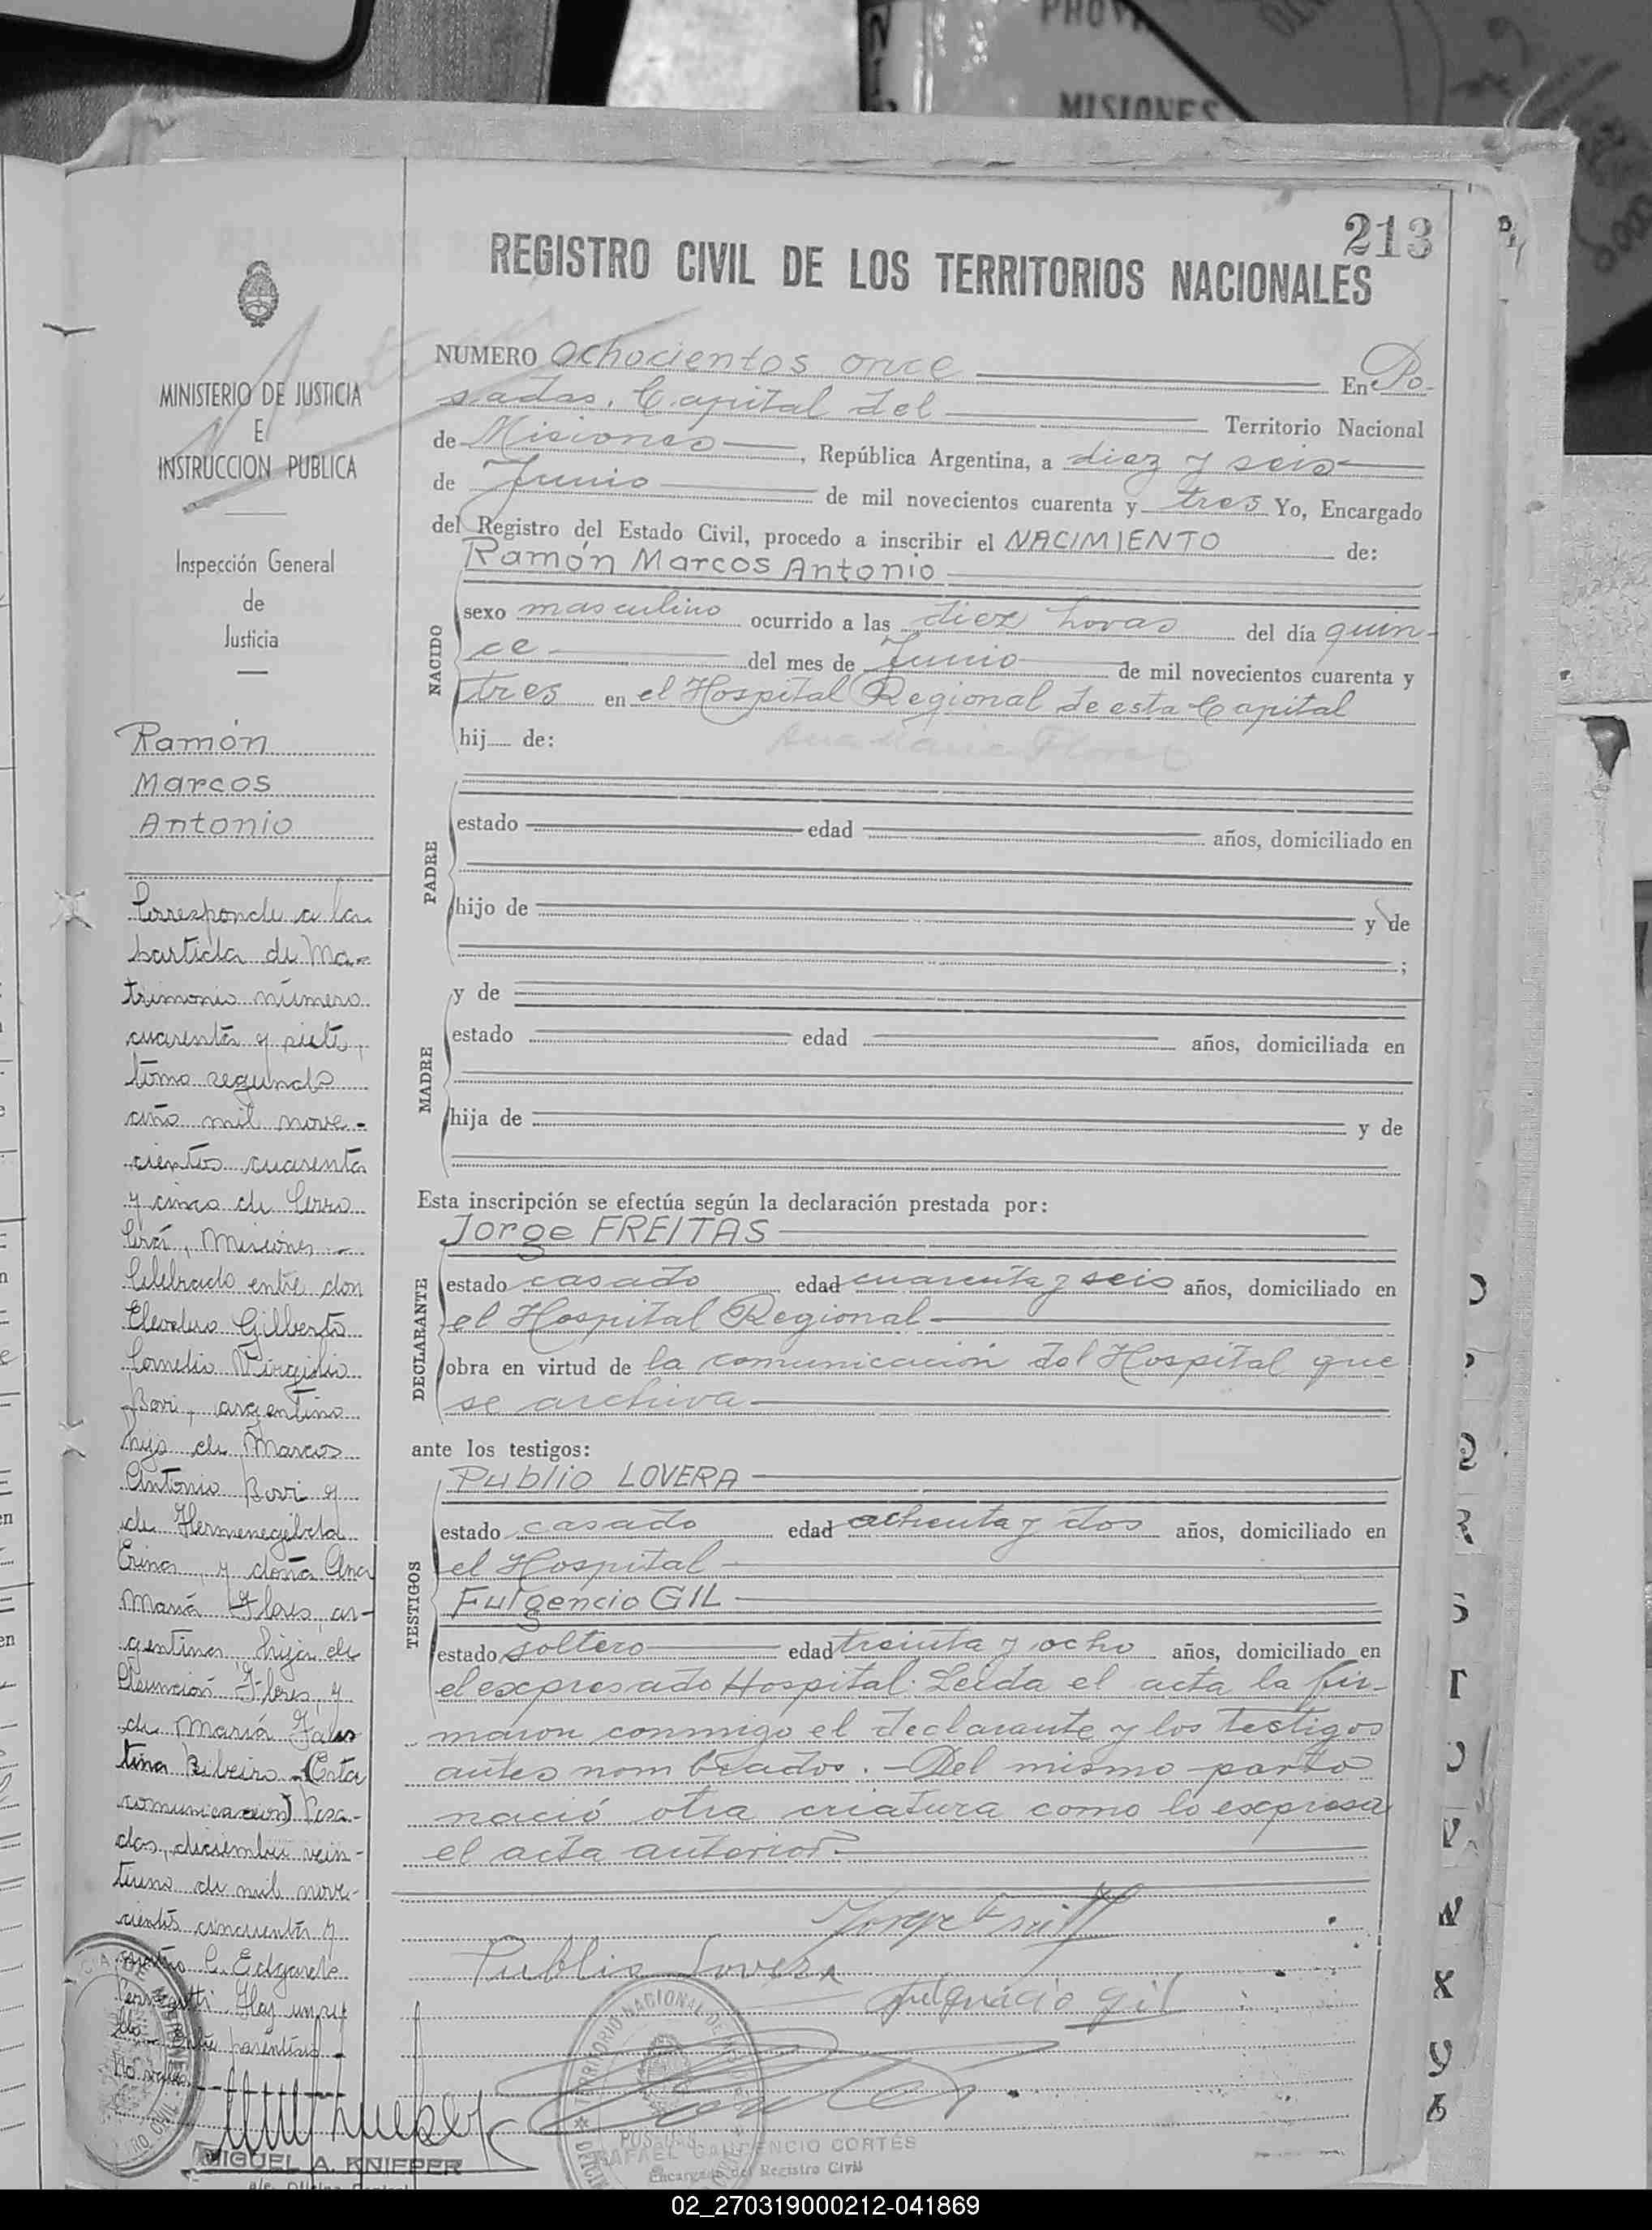 PROV
MISIONES
213
REGISTRO CIVIL DE LOS TERRITORIOS NACIONALES
MINISTERIO DE JUSTICIA
E
INSTRUCCION PUBLICA
Inspección General
de
Justicia
Ramón
Marcos
Antonio
Corresponde a la
partida de Ma-
trimonio número
cuarenta y siete,
tomo segundo
año mil nove-
cientos cuarenta
y cinco de Cerro
Corá, Misiones.-
Celebrado entre don
Eleodoro Gilberto
Cornelio Virgilio
Bovi, argentino
hijo de Marcos
Antonio Bovi y
de Hermenegilda
Erina, y doña Ana
María Flores, ar-
gentina, hija de
Asunción Flores y
de María Faus
tina Ribeiro.-(Esta
comunicación) Posa-
das, diciembre vein-
tiuno de mil nove-
cientos cincuenta y
C. Edgardo
Hay un se
llo entre paréntesis
No vale.
MIGUEL A. KNIEPER
NUMERO Ochocientos once En Po-
sadas, Capital del Territorio Nacional
de Misiones, República Argentina, a diez y seis
de Junio de mil novecientos cuarenta y tres Yo, Encargado
del Registro del Estado Civil, procedo a inscribir el NACIMIENTO de:
NACIDO
Ramón Marcos Antonio
sexo masculino ocurrido a las diez horas del día quin-
ce del mes de Junio de mil novecientos cuarenta y
tres en el Hospital Regional de esta Capital
hij de: Ana María Flores
PADRE
estado edad años, domiciliado en
hijo de y de
;
MADRE
y de
estado edad años, domiciliada en
hija de y de
Esta inscripción se efectúa según la declaración prestada por:
DECLARANTE
Jorge FREITAS
estado casado edad cuarenta y seis años, domiciliado en
el Hospital Regional
obra en virtud de la comunicación del Hospital que
se archiva
ante los testigos:
TESTIGOS
Publio LOVERA
estado casado edad ochenta y dos años, domiciliado en
el Hospital
Fulgencio GIL
estado soltero edad treinta y ocho años, domiciliado en
el expresado Hospital. Leida el acta la fir-
maron conmigo el declarante y los testigos
antes nombrados.-Del mismo parto
nació otra criatura como lo expresa
el acta anterior.
Publio Lovera
Gil
RAFAEL GAUDENCIO CORTÉS
Encargado del Registro Civil
02_270319000212-041869